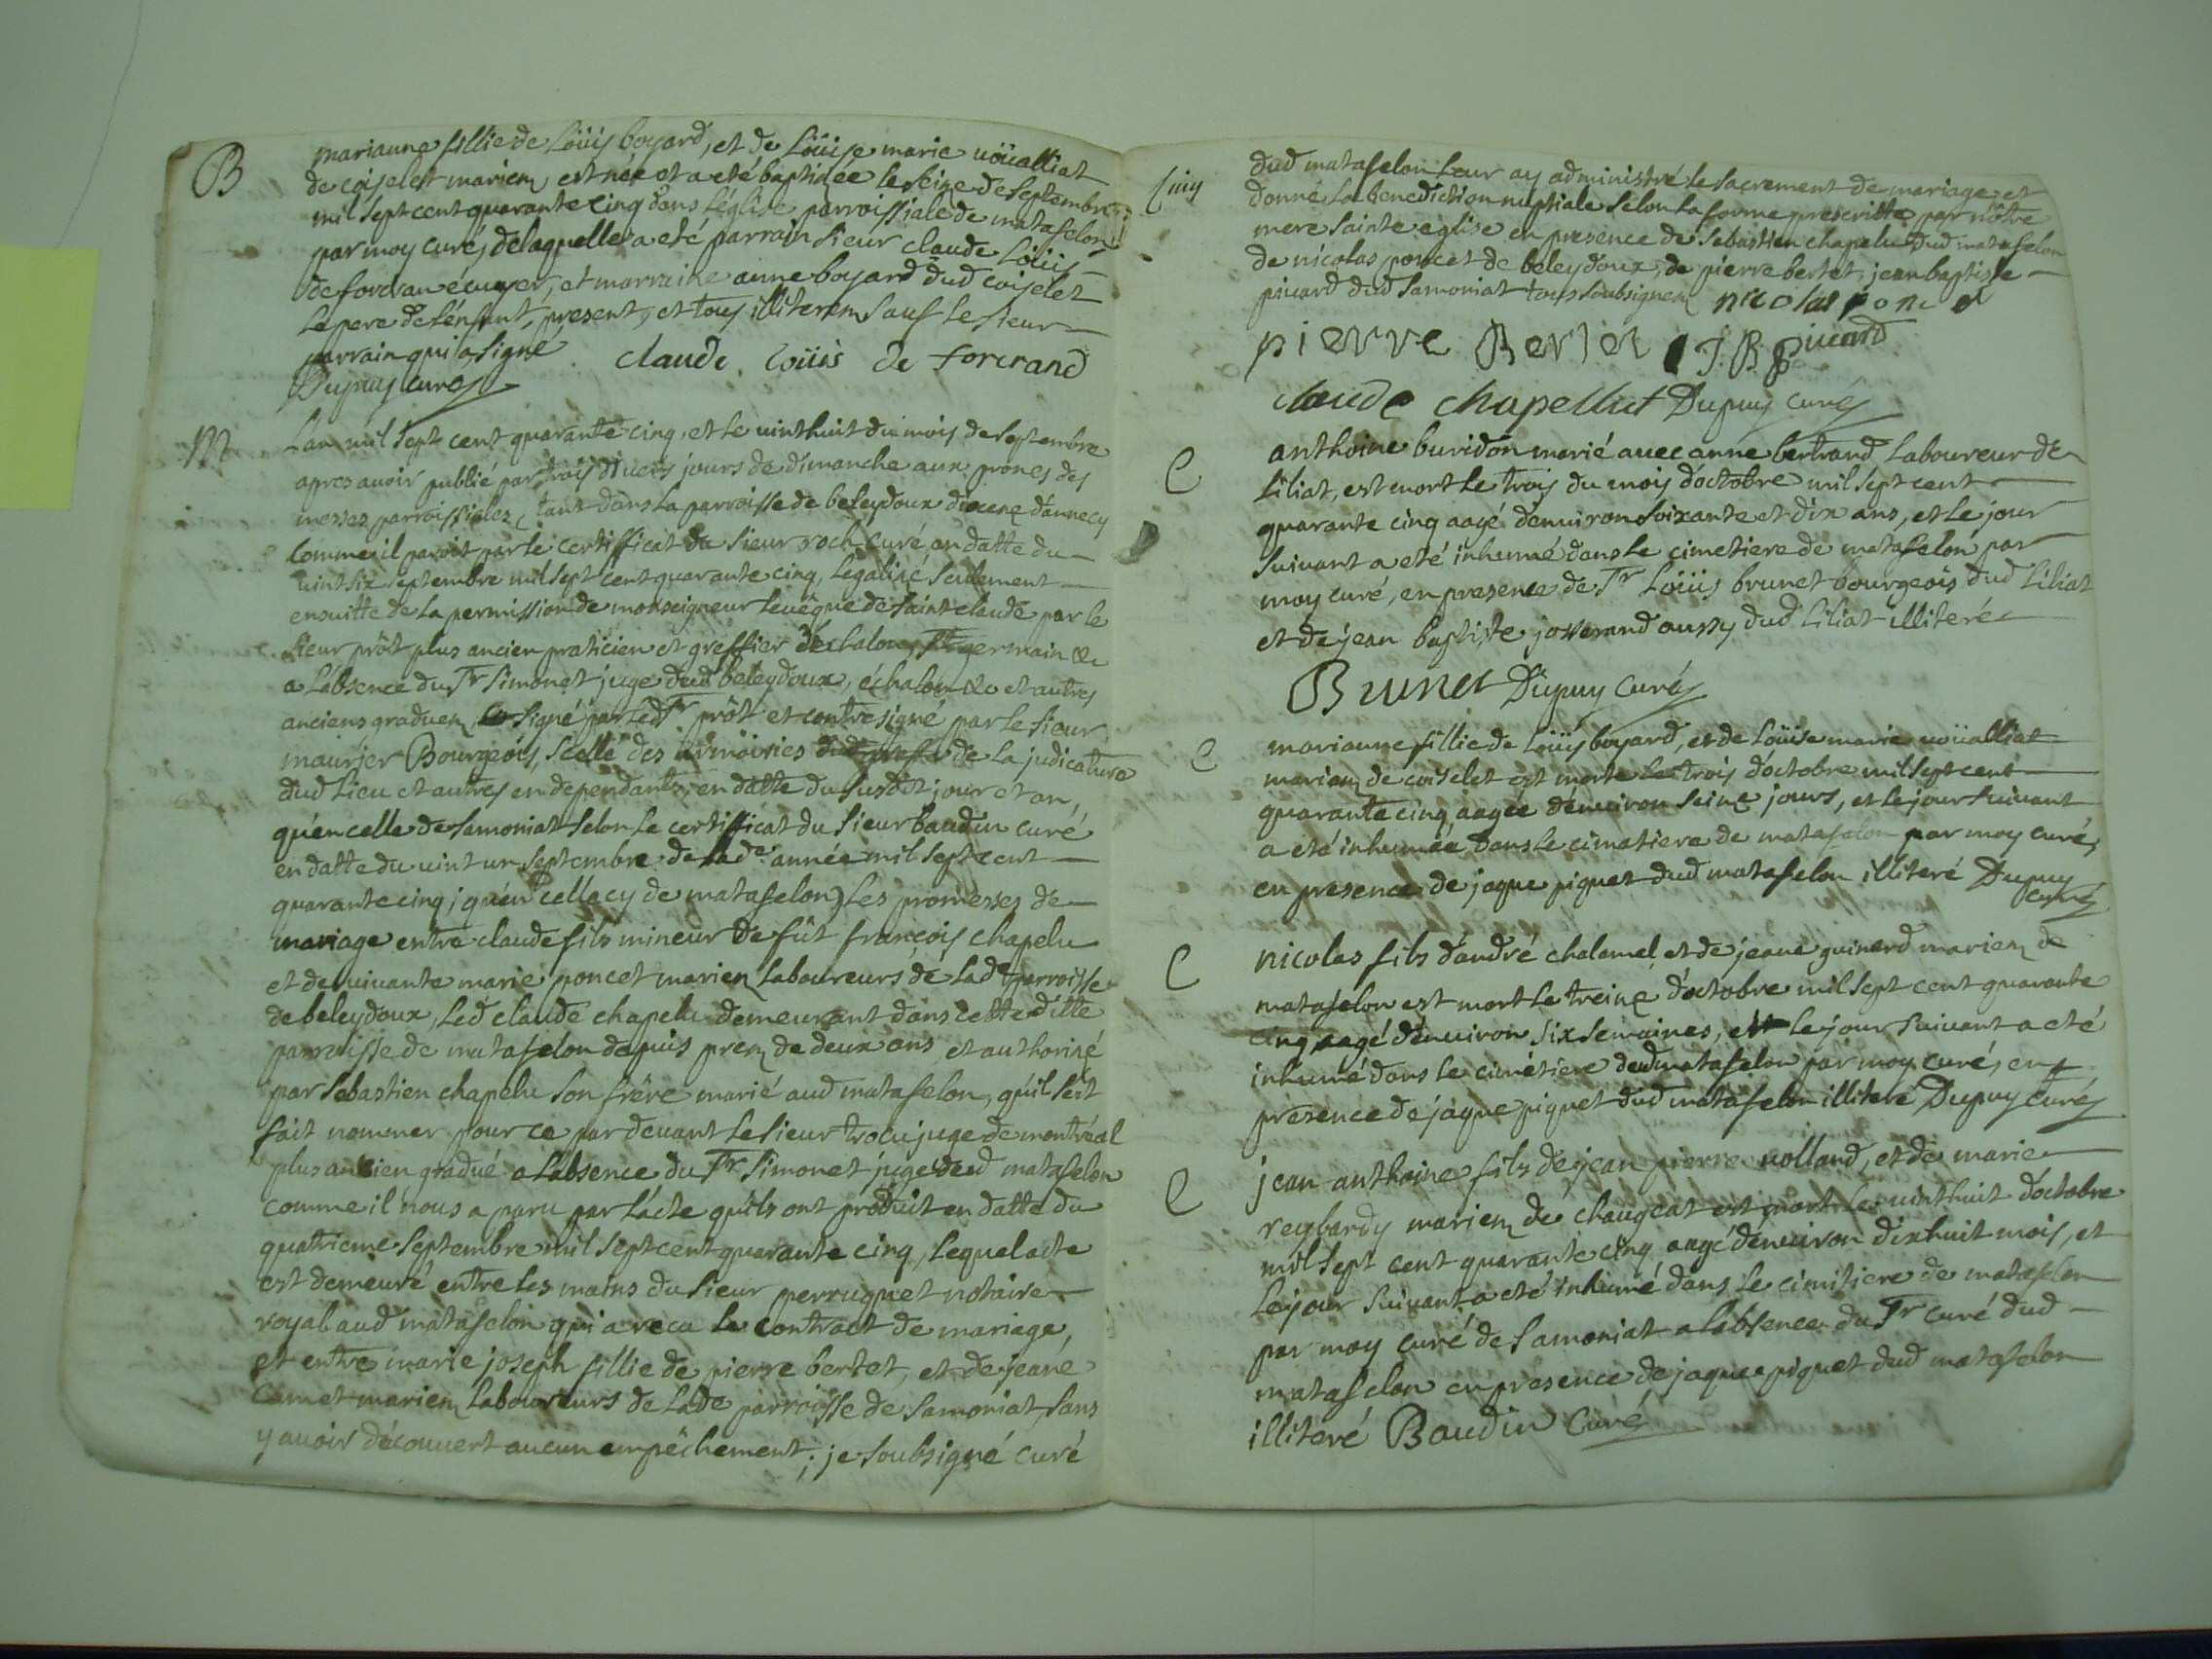 B
marianne fillie de Loüis boyard, et de Loüise marie uoüalliat
de coiselet mariez est née et a eté baptizée le seize de septembre
mil sept cent quarante cinq dans l'église parroissiale de matafelon
par moy curé, de laquelle a eté parrain sieur claude Loüis
de forcran écuyer, et marraine anne boyard dud coiselet
Le pere de l'enfant, present, et tous illiterez sauf le sieur
parrain qui a signé claude loüis de forcrand
Dupuy curé
M
L'an mil sept cent quarante cinq, et le uint huit du mois de septembre
apres auoir publié par trois diuers jours de dimanche aux prones des
messes parroissiales, tant dans la parroisse de beleydoux diocese d'annecy
comme il paroit par le certifficat du sieur roch curé en datte du
uint six septembre mil sept cent quarante cinq, legalizé seulement
ensuitte de la permission de monseigneur leuêque de saint claude par le
sieur prôt plus ancien praticien et greffier de chalon, St germain &c
a l'absence du Sr simonet juge dud beleydoux, échalon &c et autres
anciens graduez, signé par led Sr prôt et contresigné par le sieur
maurier Bourgeois, scellé des armoiries de la judicature
dud lieu et autres en dependants, en datte du susdit jour et an,
qu'en celle de samoniat selon le certifficat du sieur baudin curé
en datte du uint un septembre de lade année mil sept cent
quarante cinq; qu'en cellecy de matafelon) Les promesses de
mariage entre claude fils mineur de fût françois chapelu
et de uiuante marie poncet mariez laboureurs de lade parroisse
de beleydoux, Led claude chapelu demeurant dans cette ditte
parroisse de matafelon depuis prez de deux ans et authorizé
par sebastien chapelu son frêre marié aud matafelon, qu'il s'est
fait nommer pour ce par deuant le sieur trocu juge de montréal
plus ancien gradué a l'absence du Sr simonet juge dud matafelon
comme il nous a paru par l'acte qu'ils ont produit en datte du
quatrieme septembre mil sept cent quarante cinq, lequel acte
est demeuré entre les mains du sieur perruquet notaire
royal aud matafelon qui a recu le contract de mariage,
et entre marie joseph fillie de pierre bertet, et de jeane
camet mariez laboureurs de lade parroisse de samoniat, sans
y auoir découuert aucun empêchement; je soubsigné curé
dud matafelon leur ay administré le sacrement de mariage, et
donné la benediction nuptiale selon la forme prescritte par nôtre
mere sainte église en presence de sebastien chapelu dud matafelon
de nicolas poncet de beleydoux, de pierre bertet, jean baptiste
picard dud samoniat tous soubsignez nicolas poncet
pierre Bertet J. B. picard
claude chapellut Dupuy curé
C
anthoine buridon marié auec anne bertrand laboureur de
Liliat, est mort le trois du mois d'octobre mil sept cent
quarante cinq aagé d'enuiron soixante et dix ans, et le jour
suiuant a eté inhumé dans le cimetiere de matafelon par
moy curé, en presence de Sr Loüis brunet bourgeois dud Liliat
et de jean baptiste josserand aussy dud Liliat illiteré
Brunet Dupuy curé
C
marianne fillie de Loüis boyard, et de Loüise marie uoüalliat
mariez de coiselet est morte le trois d'octobre mil sept cent
quarante cinq, aagée d'enuiron seize jours, et le jour suiuant
a eté inhumée dans le cimetiere de matafelon par moy curé,
en presence de jaque piquet dud matafelon illiteré Dupuy
curé
C
nicolas fils d'andré chalamel et de jeane guinard mariez de
matafelon est mort le treize d'octobre mil sept cent quarante
cinq, aagé d'enuiron six semaines, et le jour suiuant a eté
inhumé dans le cimetiere dud matafelon par moy curé, en
presence de jaque piquet dud matafelon illiteré Dupuy curé
C
jean anthoine fils de jean pierre uolland, et de marie
reybardy mariez de chaugeat est mort le uint huit d'octobre
mil sept cent quarante cinq aagé d'enuiron dixhuit mois, et
le jour suiuant a eté inhumé dans le cimitiere de matafelon
par moy curé de samoniat a l'absence du Sr curé dud
matafelon en presence de jaque piquet dud matafelon
illiteré Baudin Curé